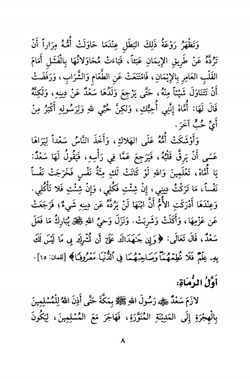 وَتَظْهَرُ رَوْعَةُ ذَلِكَ البَطَلِ عِنْدَمَا حَاوَلَتْ أُمُّهُ مِرَاراً أَنْ
تَرُدَّهُ عَنْ طَرِيقِ الإِيمَانِ عَبَثاً، فَبَاءَتْ مُحَاوَلَاتُهَا بِالْفَشَلِ أَمَامَ
القَلْبِ العَامِرِ بِالإِيمَانِ، فَامْتَنَعَتْ عَنِ الطَّعَامِ وَالشَّرَابِ، وَرَفَضَتْ
أَنْ تَتَنَاوَلَ شَيْئاً مِنْهُ، حَتَّى يَرْجِعَ وَلَدُهَا سَعْدٌ عَنْ دِينِهِ، وَلَكِنَّهُ
قَالَ لَهَا: أُمَّاهُ إِنَّنِي أُحِبُّكِ، وَلَكِنَّ حُبِّي للهِ وَلِرَسُولِهِ أَكْبَرُ مِنْ
أَيِّ حُبٍّ آخَرَ.
وَأَوْشَكَتْ أُمُّهُ عَلَى الهَلَاكِ، وَأَخَذَ النَّاسُ سَعْداً لِيَرَاهَا
عَسَى أَنْ يَرِقَّ قَلْبُهُ، فَيَرْجِعَ عَمَّا فِي رَأْسِهِ، فَيَقُولُ لَهَا سَعْدٌ:
يَا أُمَّاهُ، تَعْلَمِينَ وَاللهِ لَوْ كَانَتْ لَكِ مِئَةُ نَفْسٍ فَخَرَجَتْ نَفْساً
نَفْساً، مَا تَرَكْتُ دِينِي، إِنْ شِئْتِ فَكُلِي، وَإِنْ شِئْتِ فَلَا تَأْكُلِي.
وَعِنْدَهَا أَدْرَكَتِ الأُمُّ أَنَّ ابْنَهَا لَنْ يَرُدَّهُ عَنْ دِينِهِ شَيْءٌ، فَرَجَعَتْ
عَنْ عَزْمِهَا، وَأَكَلَتْ وَشَرِبَتْ. وَنَزَلَ وَحْيُ اللهِ يُبَارِكُ مَا فَعَلَ
سَعْدٌ، قَالَ تَعَالَى: ﴿وَإِن جَٰهَدَاكَ عَلَىٰٓ أَن تُشْرِكَ بِى مَا لَيْسَ لَكَ
بِهِۦ عِلْمٌ فَلَا تُطِعْهُمَا وَصَاحِبْهُمَا فِى ٱلدُّنْيَا مَعْرُوفًا﴾ [لقمان: ١٥].
أَوَّلُ الرُّمَاةِ:
لَازَمَ سَعْدٌ رَسُولَ اللهِ ﷺ بِمَكَّةَ حَتَّى أَذِنَ اللهُ لِلْمُسْلِمِينَ
بِالْهِجْرَةِ إِلَى المَدِينَةِ المُنَوَّرَةِ، فَهَاجَرَ مَعَ المُسْلِمِينَ، لِيَكُونَ
٨